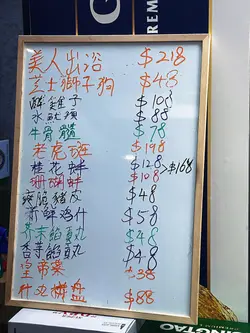 美人出浴 $218
芝士獅子狗 $48
醉雞子 $108
水魷鬚 $88
牛骨髓 $78
老虎斑 $198
桂花蚌 $128
珊瑚蚌 $108 >$168
爽脆豬皮 $48
鮮鸡什 $58
芥末餡丸 $48
香芋餡丸 $48
皇帝菜 $38
什边拼盘 $88
PREM
TSINGTAO